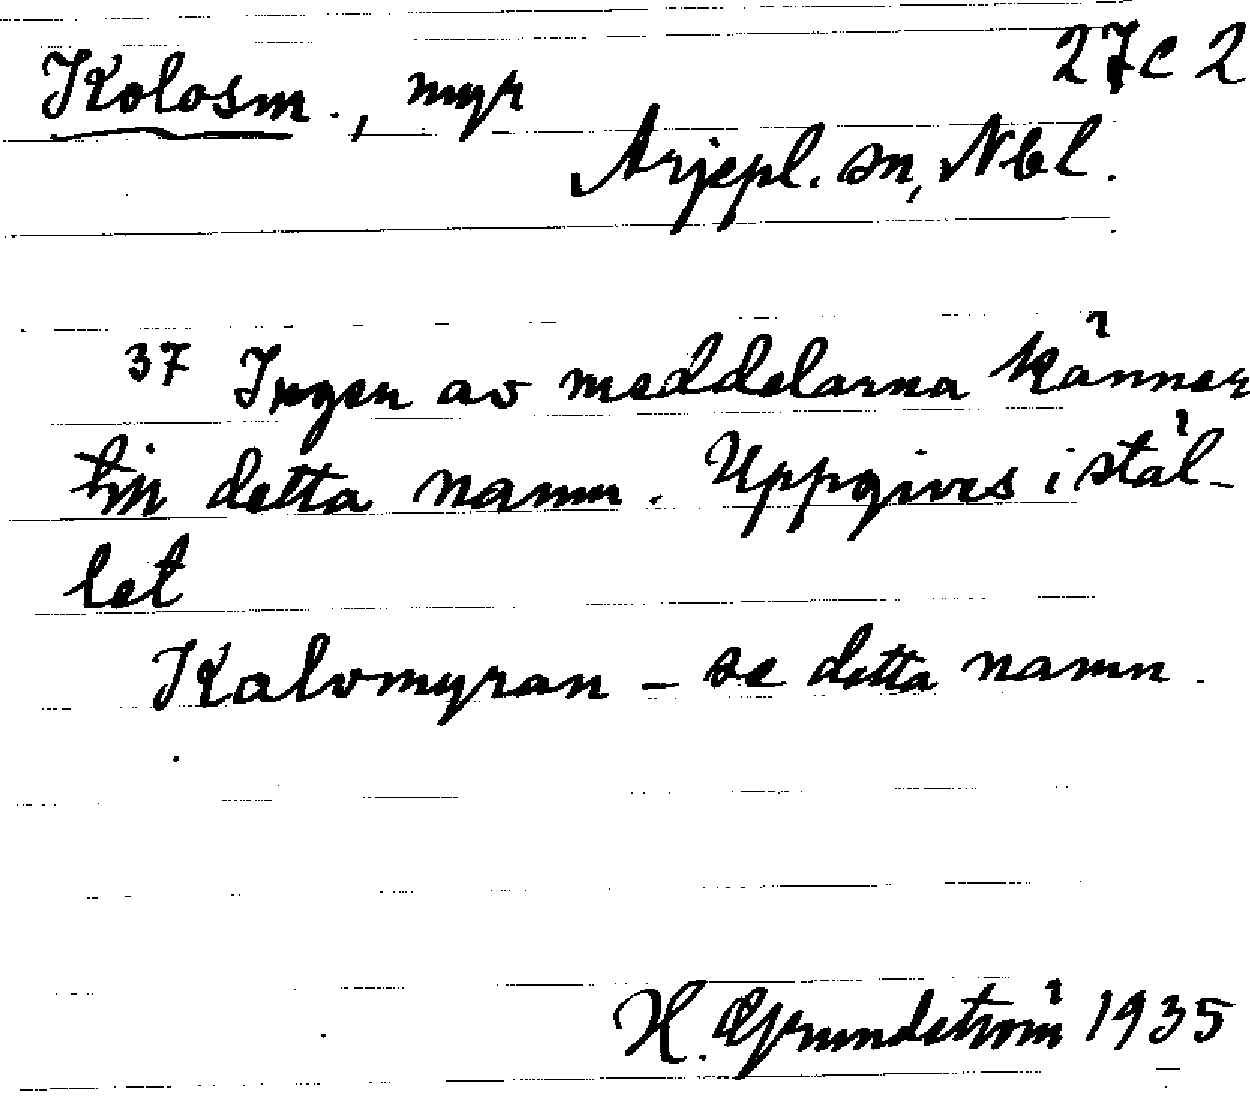 Kolosm., myr 27C2
Arjepl. sn, Nbl.
37 Ingen av meddelarna känner
till detta namn. Uppgives i stäl-
let
Kalvmyran – se detta namn.
H. Grundström 1935